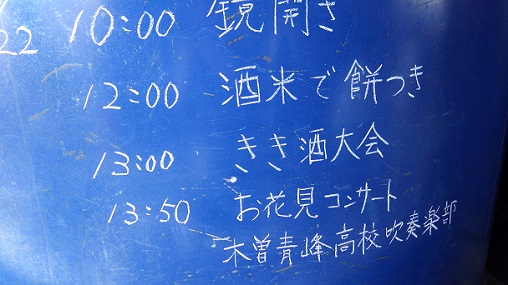 22 10:00 鏡開き
12:00 酒米で餅つき
13:00 きき酒大会
13:50 お花見コンサート
木曽青峰高校吹奏楽部